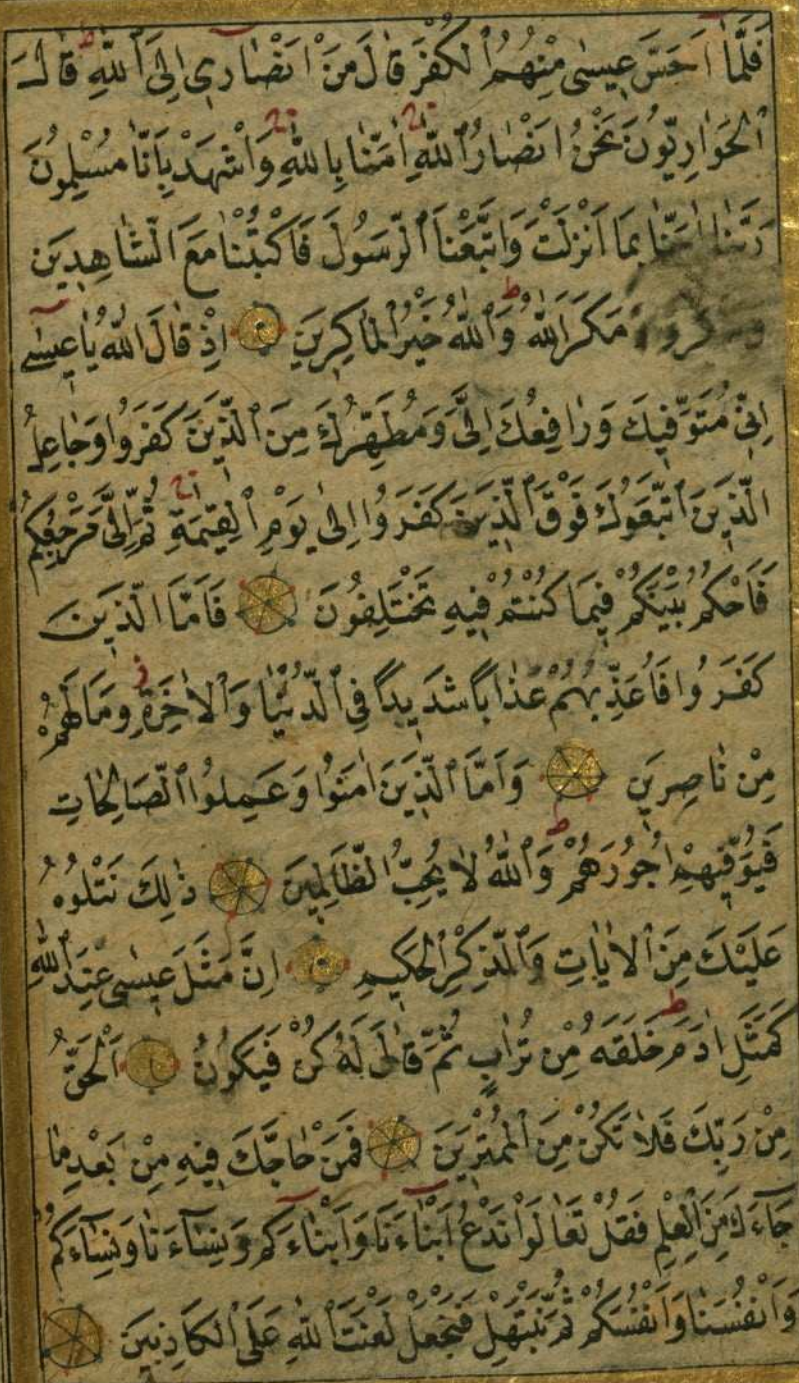 فَلَمَّا اَحَسَّ عِيسٰى مِنْهُمُ الْكُفْرَ قَالَ مَنْ اَنْصَارِي اِلَى اللّٰهِ ط قَالَ
الْحَوَارِيُّونَ نَحْنُ اَنْصَارُ اللّٰهِ اٰمَنَّا بِاللّٰهِ وَاشْهَدْ بِاَنَّا مُسْلِمُونَ
رَبَّنَا اٰمَنَّا بِمَا اَنْزَلْتَ وَاتَّبَعْنَا الرَّسُولَ فَاكْتُبْنَا مَعَ الشَّاهِدِينَ
وَمَكَرُوا وَمَكَرَ اللّٰهُ ط وَاللّٰهُ خَيْرُ الْمَاكِرِينَ اِذْ قَالَ اللّٰهُ يَاعِيسٰى
اِنِّي مُتَوَفِّيكَ وَرَافِعُكَ اِلَيَّ وَمُطَهِّرُكَ مِنَ الَّذِينَ كَفَرُوا وَجَاعِلُ
الَّذِينَ اتَّبَعُوكَ فَوْقَ الَّذِينَ كَفَرُوا اِلٰى يَوْمِ الْقِيٰمَةِ ج ثُمَّ اِلَيَّ مَرْجِعُكُمْ
فَاَحْكُمُ بَيْنَكُمْ فِيمَا كُنْتُمْ فِيهِ تَخْتَلِفُونَ فَاَمَّا الَّذِينَ
كَفَرُوا فَاُعَذِّبُهُمْ عَذَابًا شَدِيدًا فِي الدُّنْيَا وَالْاٰخِرَةِ ز وَمَا لَهُمْ
مِنْ نَاصِرِينَ وَاَمَّا الَّذِينَ اٰمَنُوا وَعَمِلُوا الصَّالِحَاتِ
فَيُوَفِّيهِمْ اُجُورَهُمْ ط وَاللّٰهُ لَا يُحِبُّ الظَّالِمِينَ ذٰلِكَ نَتْلُوهُ
عَلَيْكَ مِنَ الْاٰيَاتِ وَالذِّكْرِ الْحَكِيمِ اِنَّ مَثَلَ عِيسٰى عِنْدَ اللّٰهِ
كَمَثَلِ اٰدَمَ ط خَلَقَهُ مِنْ تُرَابٍ ثُمَّ قَالَ لَهُ كُنْ فَيَكُونُ اَلْحَقُّ
مِنْ رَبِّكَ فَلَا تَكُنْ مِنَ الْمُمْتَرِينَ فَمَنْ حَاجَّكَ فِيهِ مِنْ بَعْدِ مَا
جَآءَكَ مِنَ الْعِلْمِ فَقُلْ تَعَالَوْا نَدْعُ اَبْنَآءَنَا وَاَبْنَآءَكُمْ وَنِسَآءَنَا وَنِسَآءَكُمْ
وَاَنْفُسَنَا وَاَنْفُسَكُمْ ثُمَّ نَبْتَهِلْ فَنَجْعَلْ لَعْنَتَ اللّٰهِ عَلَى الْكَاذِبِينَ